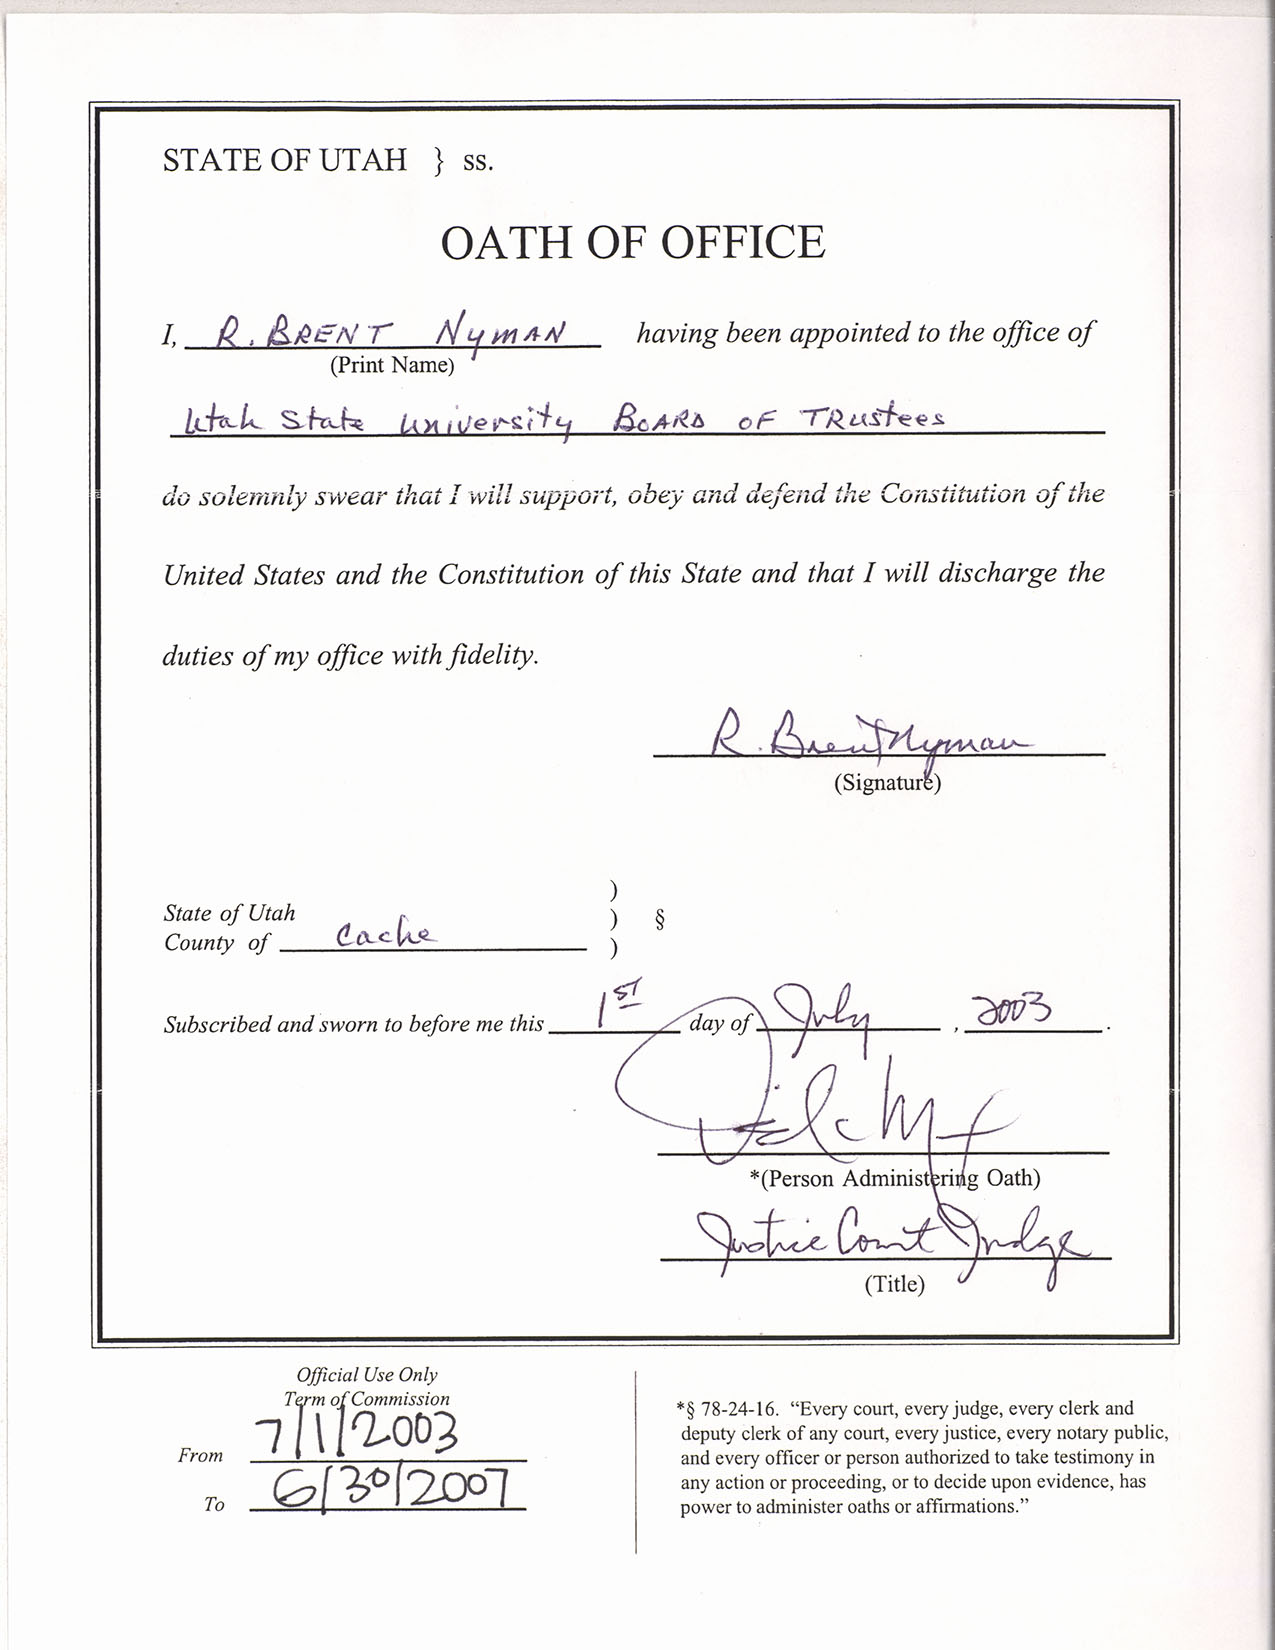 STATE OF UTAH } ss.
OATH OF OFFICE
I, R. BRENT NYMAN having been appointed to the office of
(Print Name)
Utah State University BOARD OF TRustees
do solemnly swear that I will support, obey and defend the Constitution of the
United States and the Constitution of this State and that I will discharge the
duties of my office with fidelity.
R. Brent Nyman
(Signature)
State of Utah )
) §
County of Cache )
Subscribed and sworn to before me this 1ST day of July , 2003 .
*(Person Administering Oath)
Justice Court Judge
(Title)
Official Use Only
Term of Commission
From 7/1/2003
To 6/30/2007
*§ 78-24-16. “Every court, every judge, every clerk and
deputy clerk of any court, every justice, every notary public,
and every officer or person authorized to take testimony in
any action or proceeding, or to decide upon evidence, has
power to administer oaths or affirmations.”